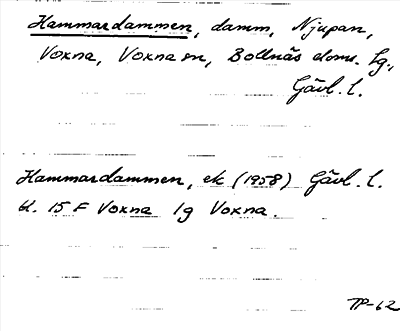 Hammardammen, damm, Njupan,
Voxna, Voxna sn, Bollnäs doms. lg.,
Gävl. l.
Hammardammen, ek (1958) Gävl. l.
bl. 15 F Voxna lg Voxna.
TP-62